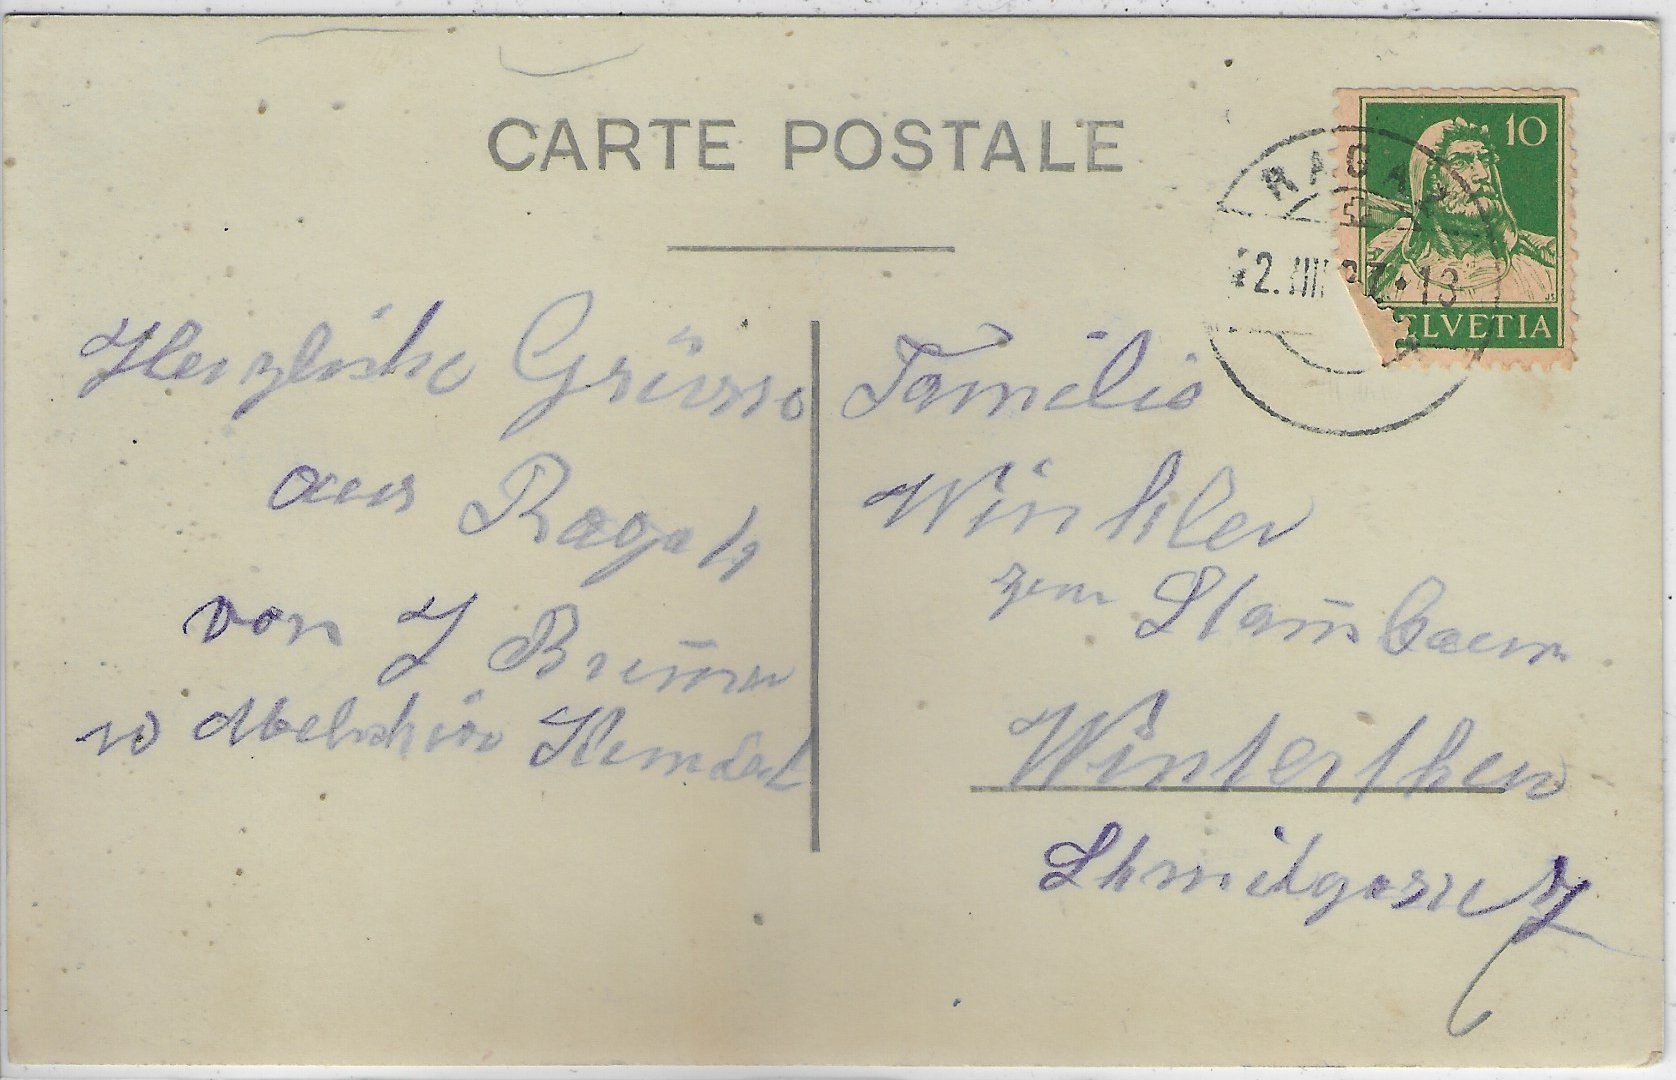 CARTE POSTALE
10
HELVETIA
RAGAZ
2.VIII 27-13
Herzliche Grüsse
aus Ragatz
von J Brunner
Familie
Winkler
zum Stammbaum
Winterthur
Schmidgasse 7